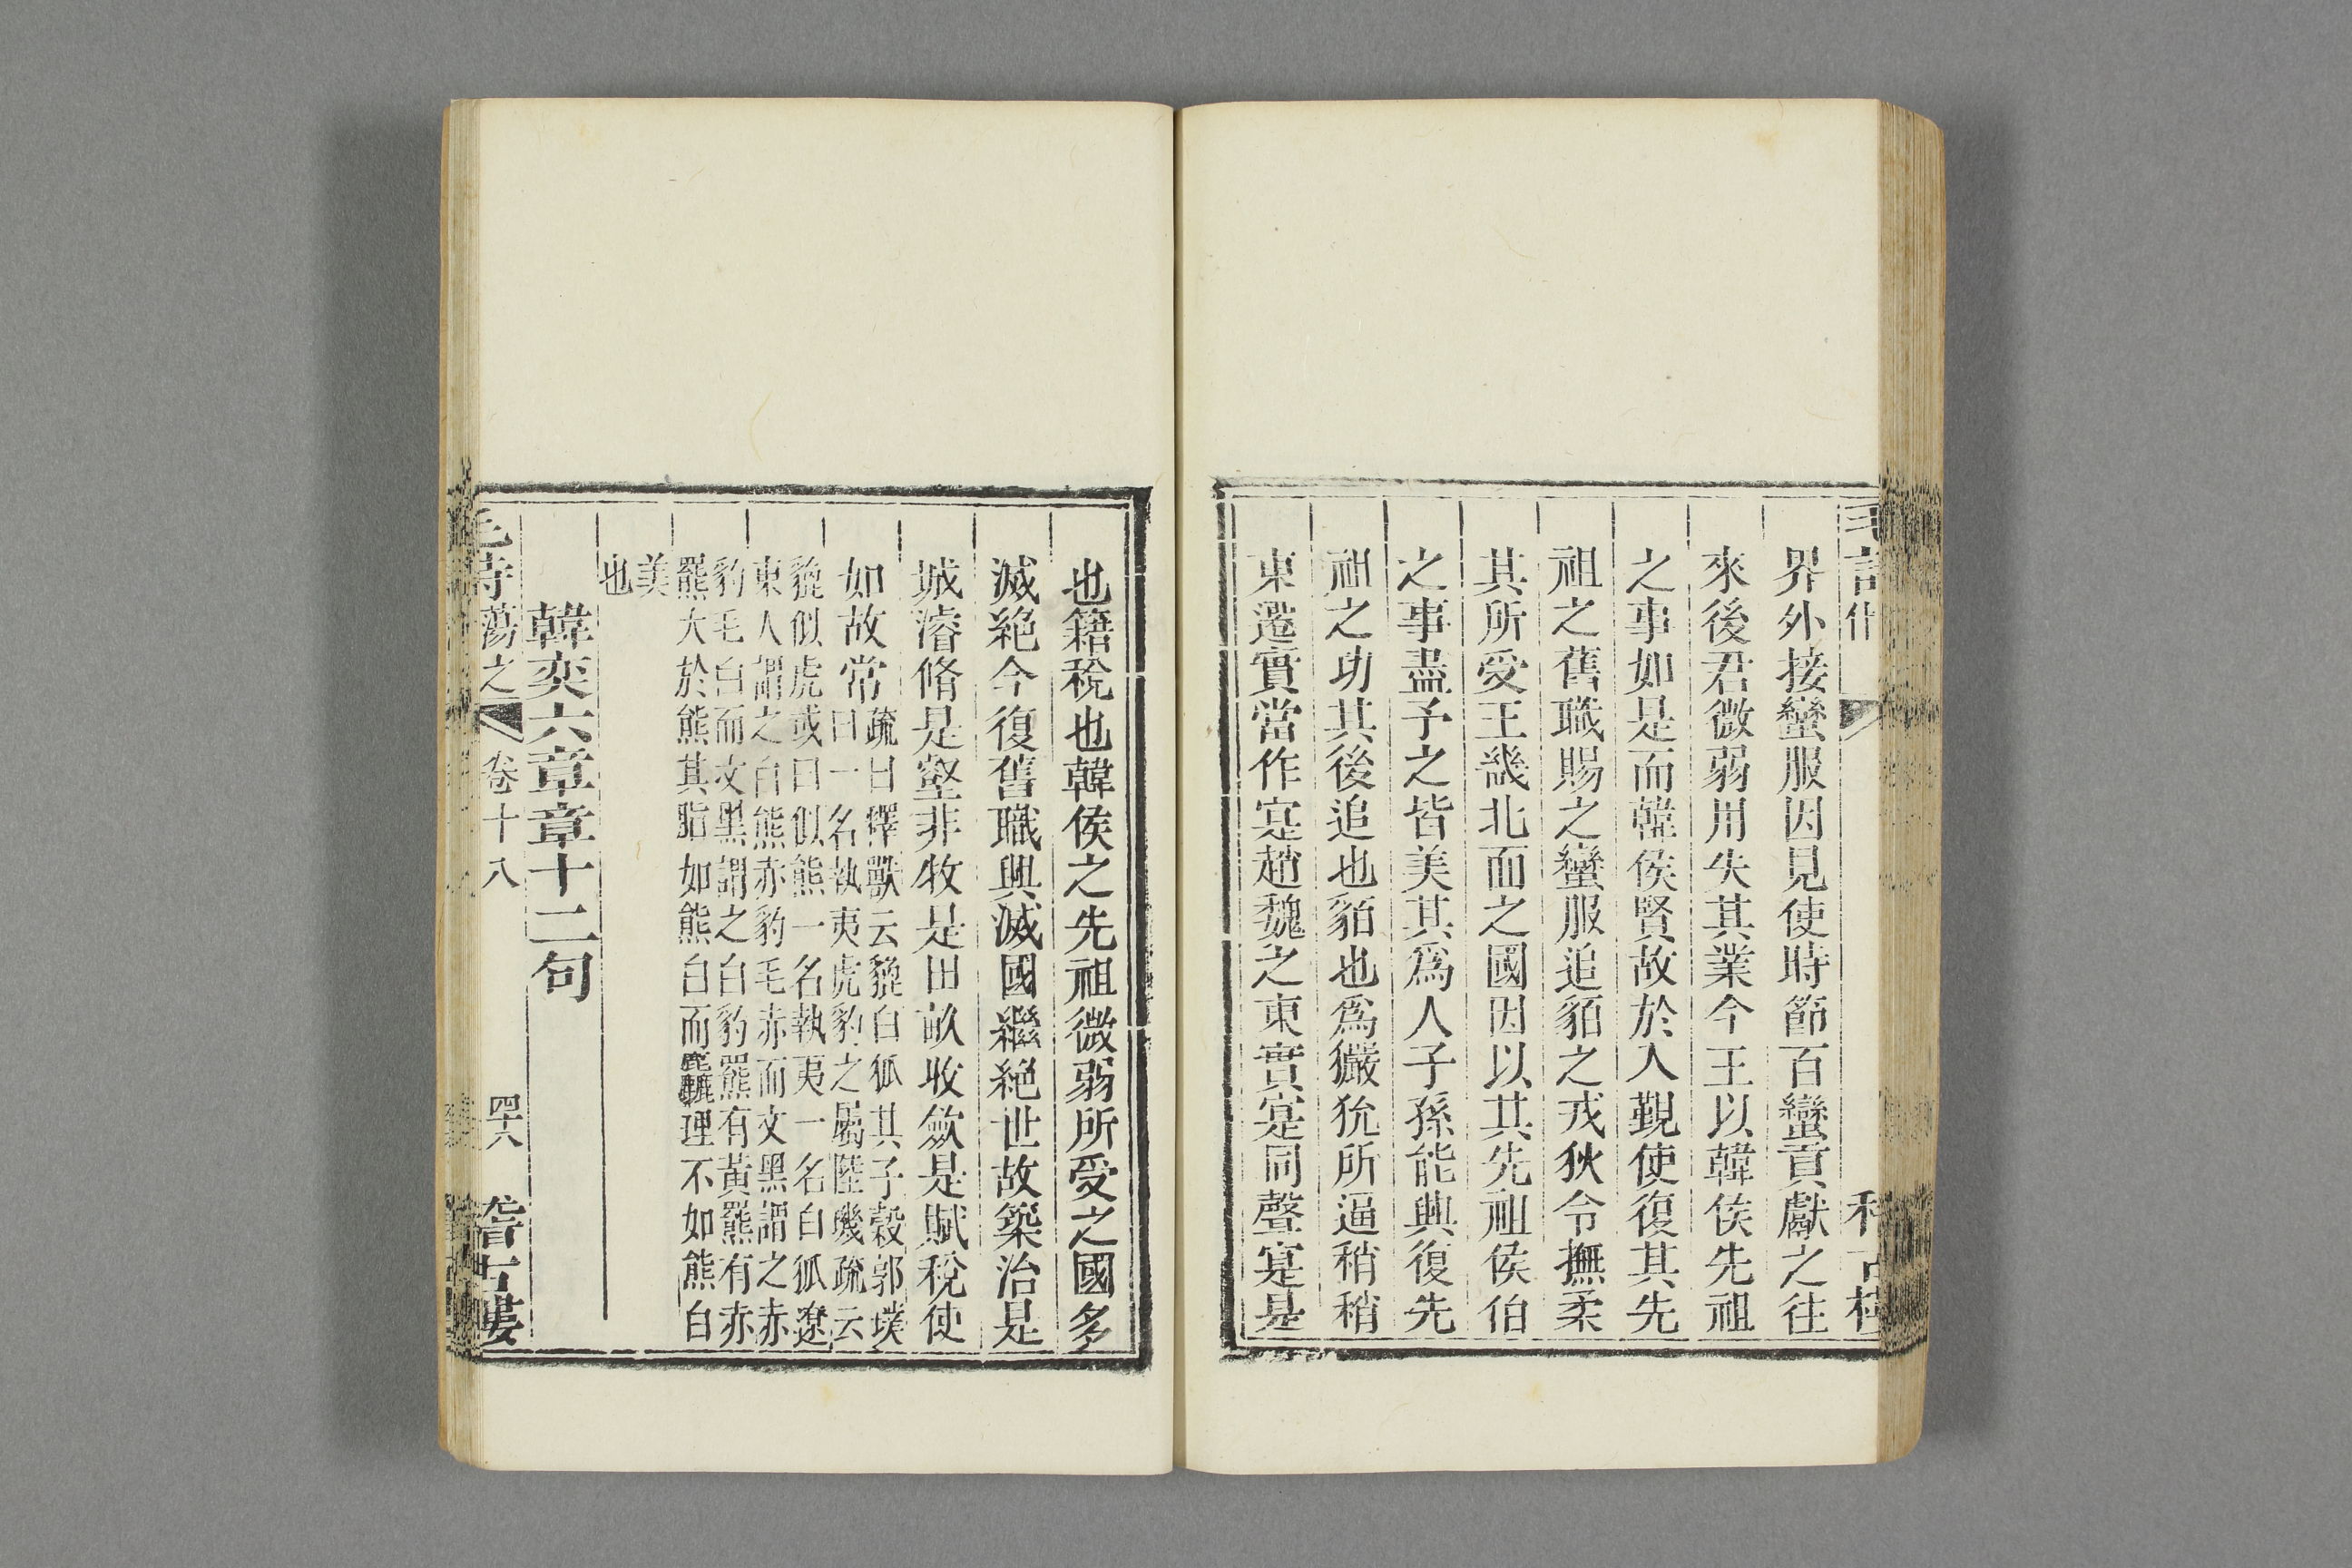 界外接蠻服因見使時節百蠻貢獻之往
來後君微弱用失其業今王以韓侯先祖
之事如是而韓侯賢故於入覲使復其先
祖之舊職賜之蠻服追貊之戎狄令撫柔
其所受王畿北面之國因以其先祖侯伯
之事盡予之皆美其為人子孫能興復先
祖之功其後追也貊也為玁狁所逼稍稍
東遷實當作寔趙魏之東實寔同聲寔是
也籍稅也韓侯之先祖微弱所受之國多
滅絕今復舊職興滅國繼絕世故築治是
城濬脩是壑井牧是田畝收斂是賦稅使
如故常
疏曰釋獸云貔白狐其子縠郭璞
曰一名執夷虎豹之屬陸璣疏云
貔似虎或曰似熊一名執夷一名白狐遼
東人謂之白熊赤豹毛赤而文黑謂之赤
豹毛白而文黑謂之白豹羆有黃羆有赤
羆大於熊其脂如熊白而麄理不如熊白
美
也
韓奕六章章十二句
毛詩蕩之 卷十八 四六 㳺古樓